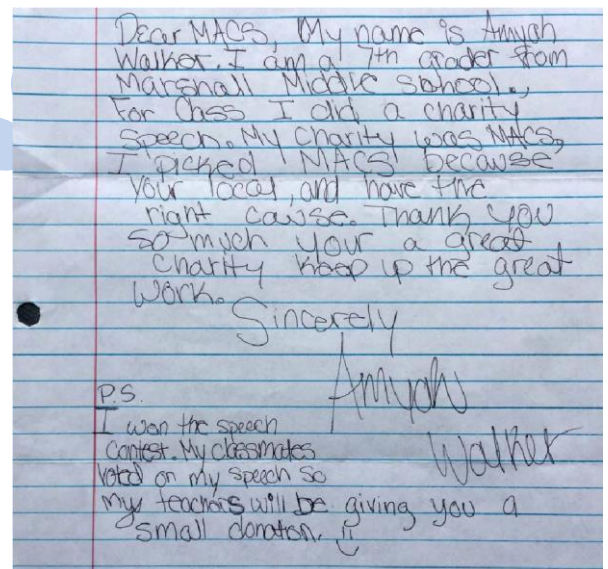 Dear MACS, My name is Amyah
Walker. I am a 7th grader from
Marshall Middle School.,
For Class I did a charity
speech. My Charity was MACS,
I picked MACS because
your local, and have the
right cause. Thank you
so much your a great
charity keep up the great
work.
Sincerely
Amyah
Walker
P.S.
I won the speech
Contest. My classmates
voted on my speech so
my teachers will be giving you a
small donaton.